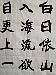 白日依山
入海流欲
目更上一